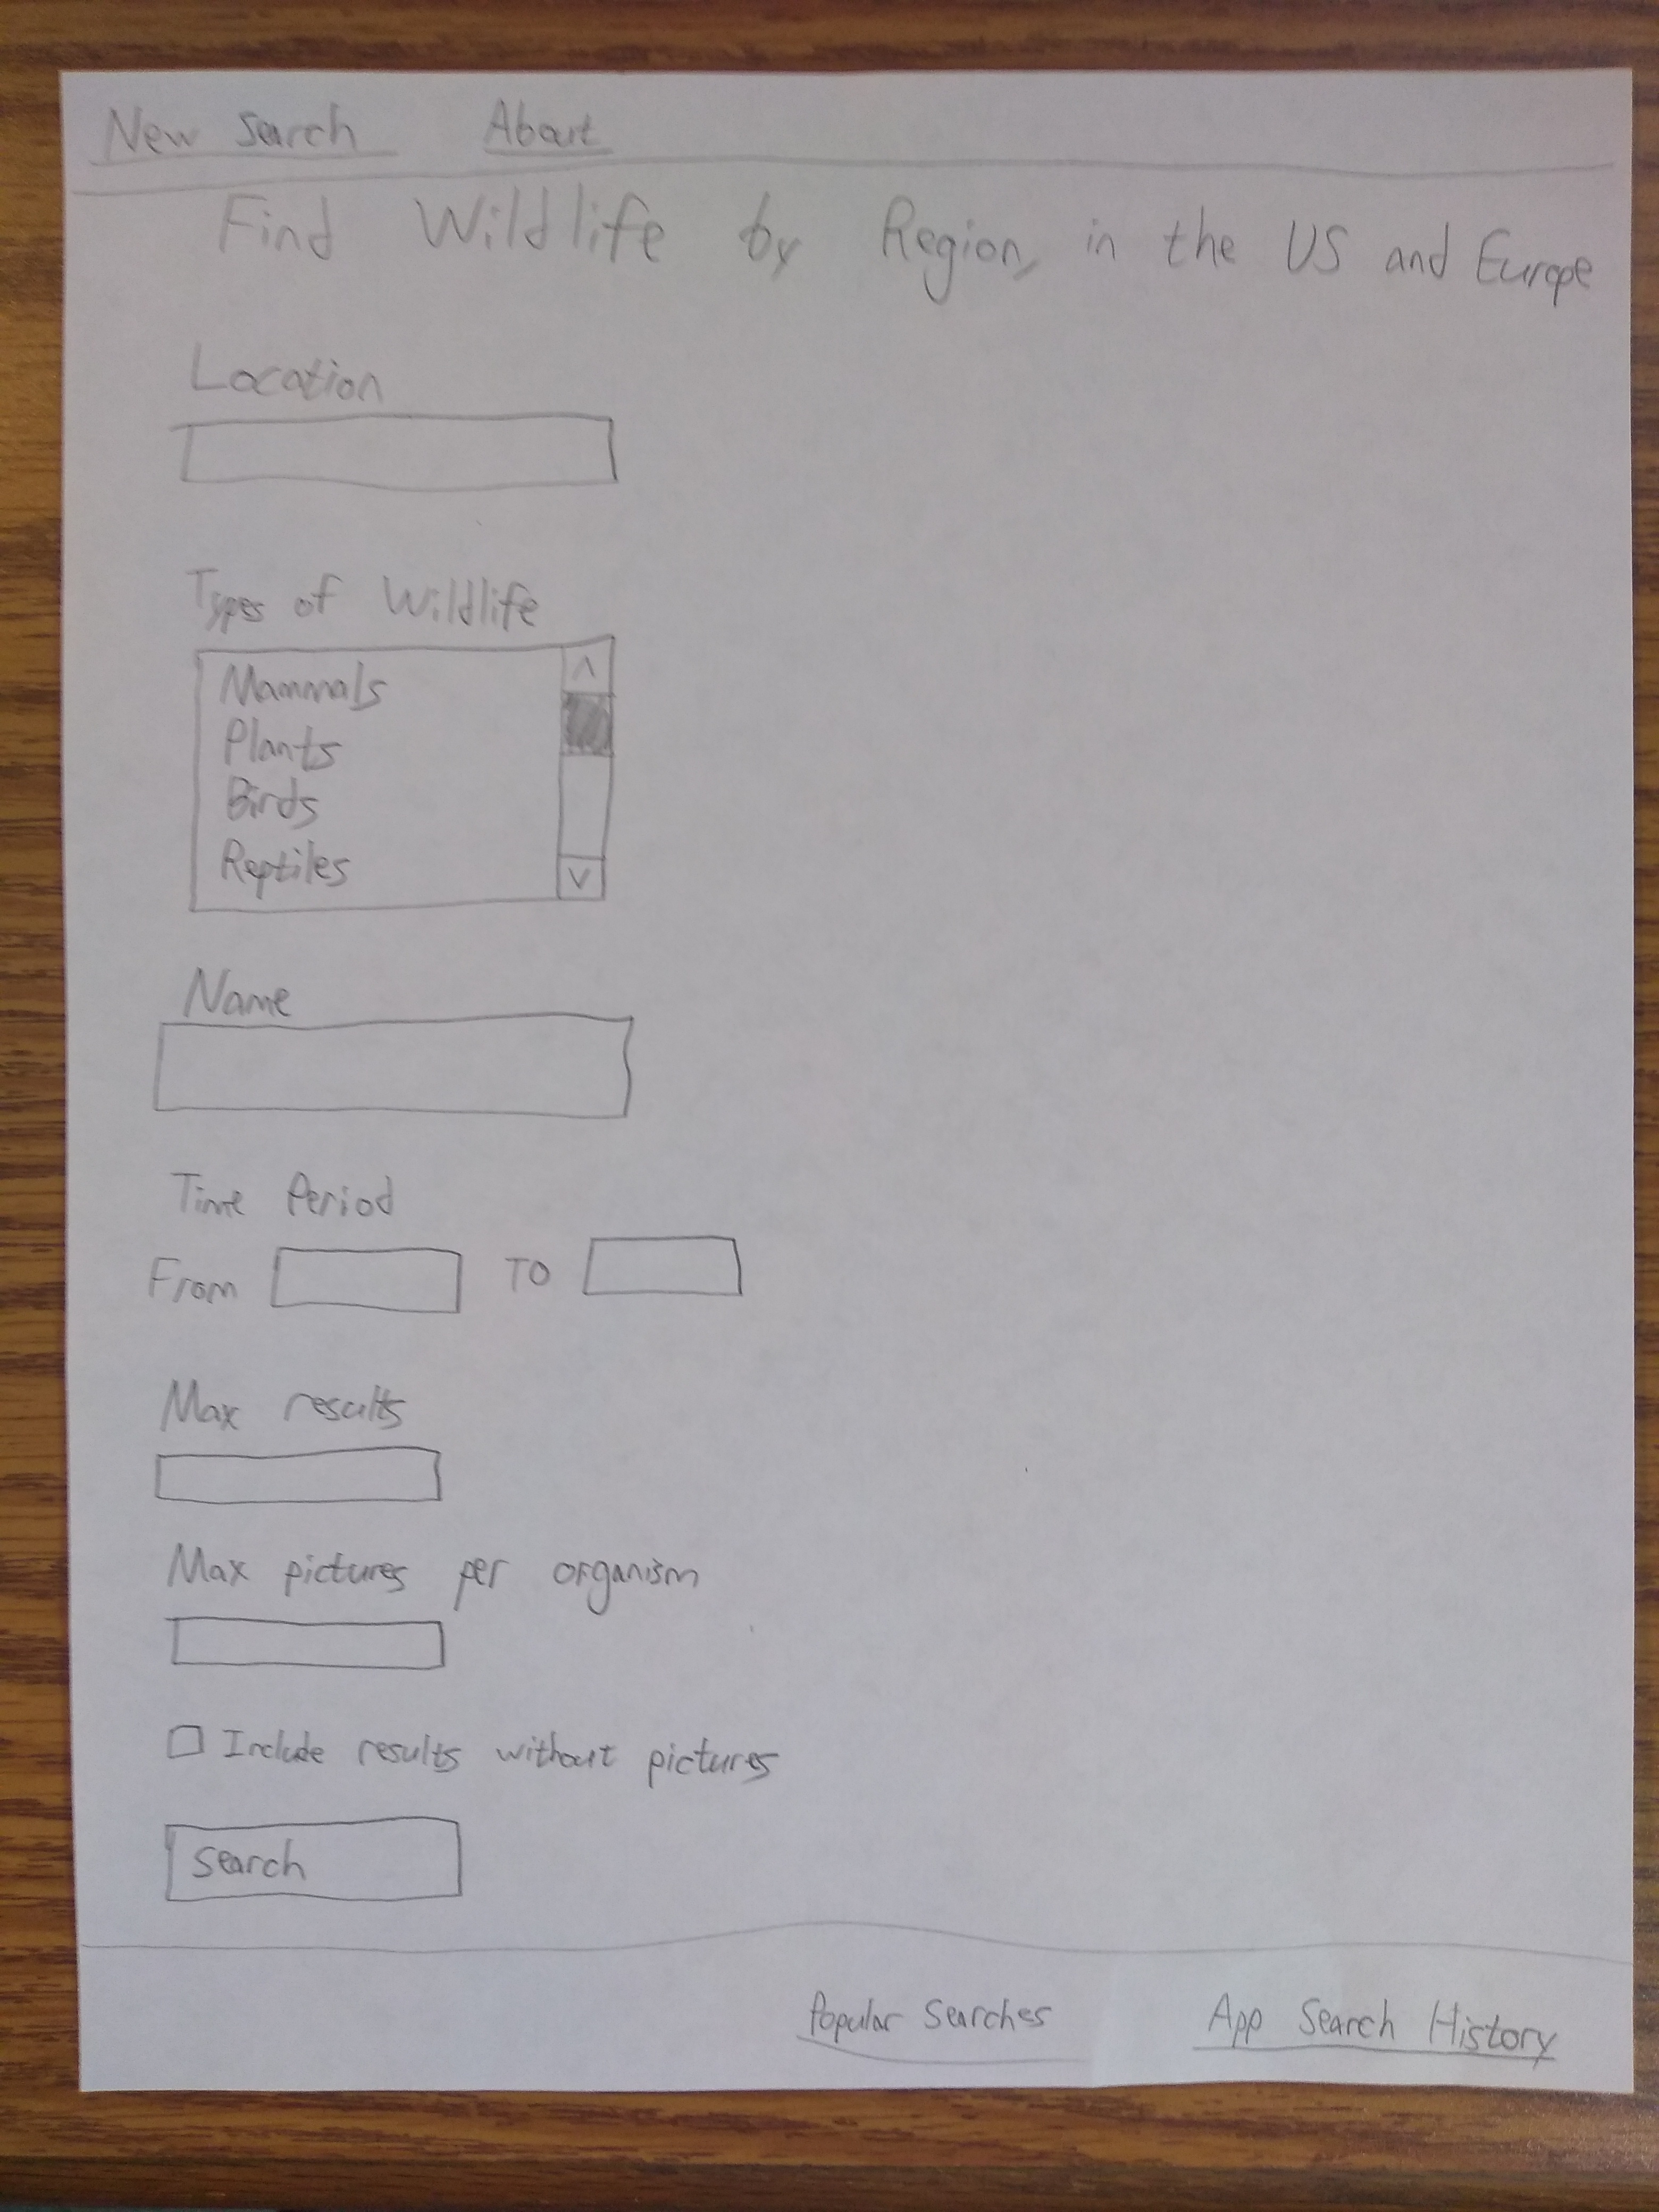 New Search About
Find Wildlife by Region, in the US and Europe
Location
Types of Wildlife
Mammals
Plants
Birds
Reptiles
Name
Time Period
From TO
Max results
Max pictures per organism
Include results without pictures
Search
Popular Searches App Search History